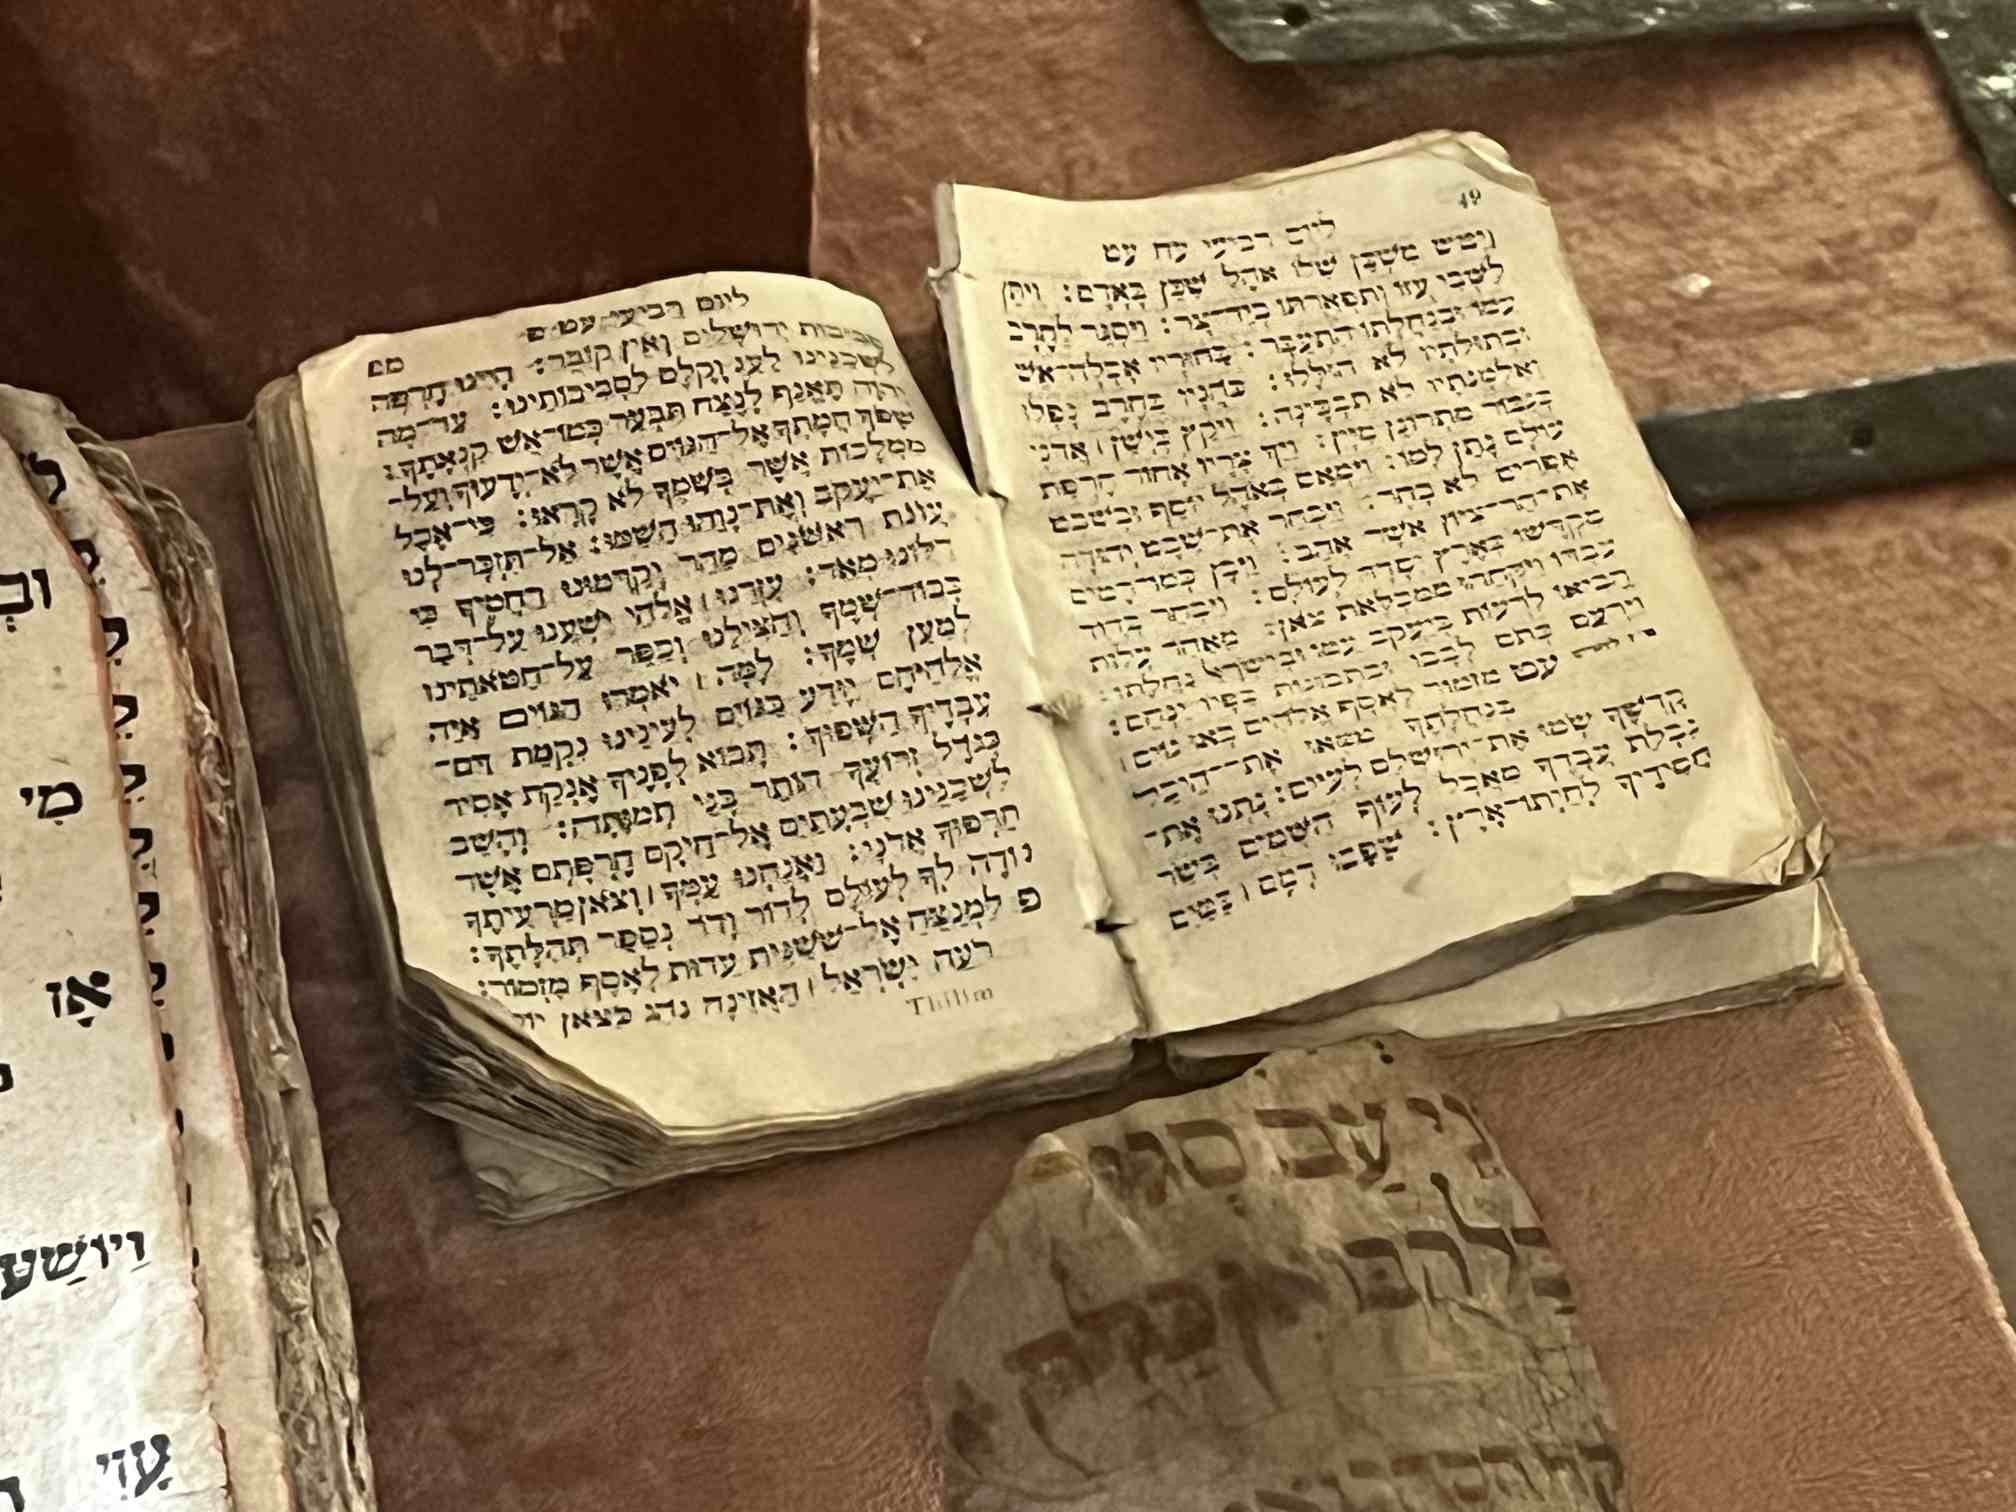 48
ליום רביעי עח עט
ויטש משכן שלו אהל שכן באדם: ויתן
לשבי עזו ותפארתו ביד־צר: ויסגר לחרב
עמו ובנחלתו התעבר: בחוריו אכלה־אש
ובתולתיו לא הוללו: כהניו בחרב נפלו
ואלמנתיו לא תבכינה: ויקץ כישן ׀ אדני
כגבור מתרונן מיין: ויך צריו אחור חרפת
עולם נתן למו: וימאס באהל יוסף ובשבט
אפרים לא בחר: ויבחר את־שבט יהודה
את־הר־ציון אשר אהב: ויבן כמו־רמים
מקדשו כארץ יסדה לעולם: ויבחר בדוד
עבדו ויקחהו ממכלאת צאן: מאחר עלות
הביאו לרעות ביעקב עמו ובישראל נחלתו:
וירעם כתם לבבו ובתבונות כפיו ינחם:
עט מזמור לאסף אלהים באו גוים ׀
בנחלתך טמאו את־היכל
קדשך שמו את־ירושלם לעיים: נתנו את־
נבלת עבדיך מאכל לעוף השמים בשר
חסידיך לחיתו־ארץ: שפכו דמם ׀ כמים
ליום רביעי עט פ
סביבות ירושלים ואין קובר: היינו חרפה
לשכנינו לעג וקלס לסביבותינו: עד־מה
יהוה תאנף לנצח תבער כמו־אש קנאתך:
שפך חמתך אל־הגוים אשר לא־ידעוך ועל־
ממלכות אשר בשמך לא קראו: כי־אכל
את־יעקב ואת־נוהו השמו: אל־תזכר־לנו
עונת ראשנים מהר יקדמונו רחמיך כי
דלונו מאד: עזרנו ׀ אלהי ישענו על־דבר
כבוד־שמך והצילנו וכפר על־חטאתינו
למען שמך: למה ׀ יאמרו הגוים איה
אלהיהם יודע בגוים לעינינו נקמת דם־
עבדיך השפוך: תבוא לפניך אנקת אסיר
כגדל זרועך הותר בני תמותה: והשב
לשכנינו שבעתים אל־חיקם חרפתם אשר
חרפוך אדני: ואנחנו עמך ׀ וצאן מרעיתך
נודה לך לעולם לדור ודר נספר תהלתך:
פ למנצח אל־ששנים עדות לאסף מזמור:
רעה ישראל ׀ האזינה נהג כצאן
Thilim
מי
אז
ויושע
עזי
עב סגי